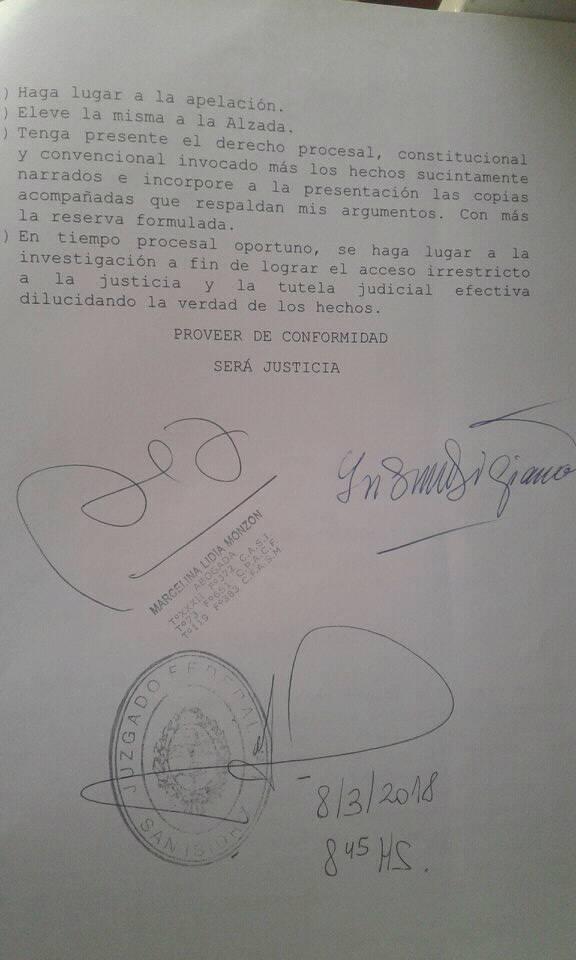 ) Haga lugar a la apelación.
) Eleve la misma a la Alzada.
) Tenga presente el derecho procesal, constitucional
y convencional invocado más los hechos sucintamente
narrados e incorpore a la presentación las copias
acompañadas que respaldan mis argumentos. Con más
la reserva formulada.
) En tiempo procesal oportuno, se haga lugar a la
investigación a fin de lograr el acceso irrestricto
a la justicia y la tutela judicial efectiva
dilucidando la verdad de los hechos.
PROVEER DE CONFORMIDAD
SERÁ JUSTICIA
MARCELINA LIDIA MONZON
ABOGADA
TºXXXII Fº372 C.A.S.I.
Tº73 Fº651 C.P.A.C.F.
Tº119 Fº383 C.F.A.S.M
JUZGADO FEDERAL
SAN ISIDRO
8/3/2018
8 45 HS.